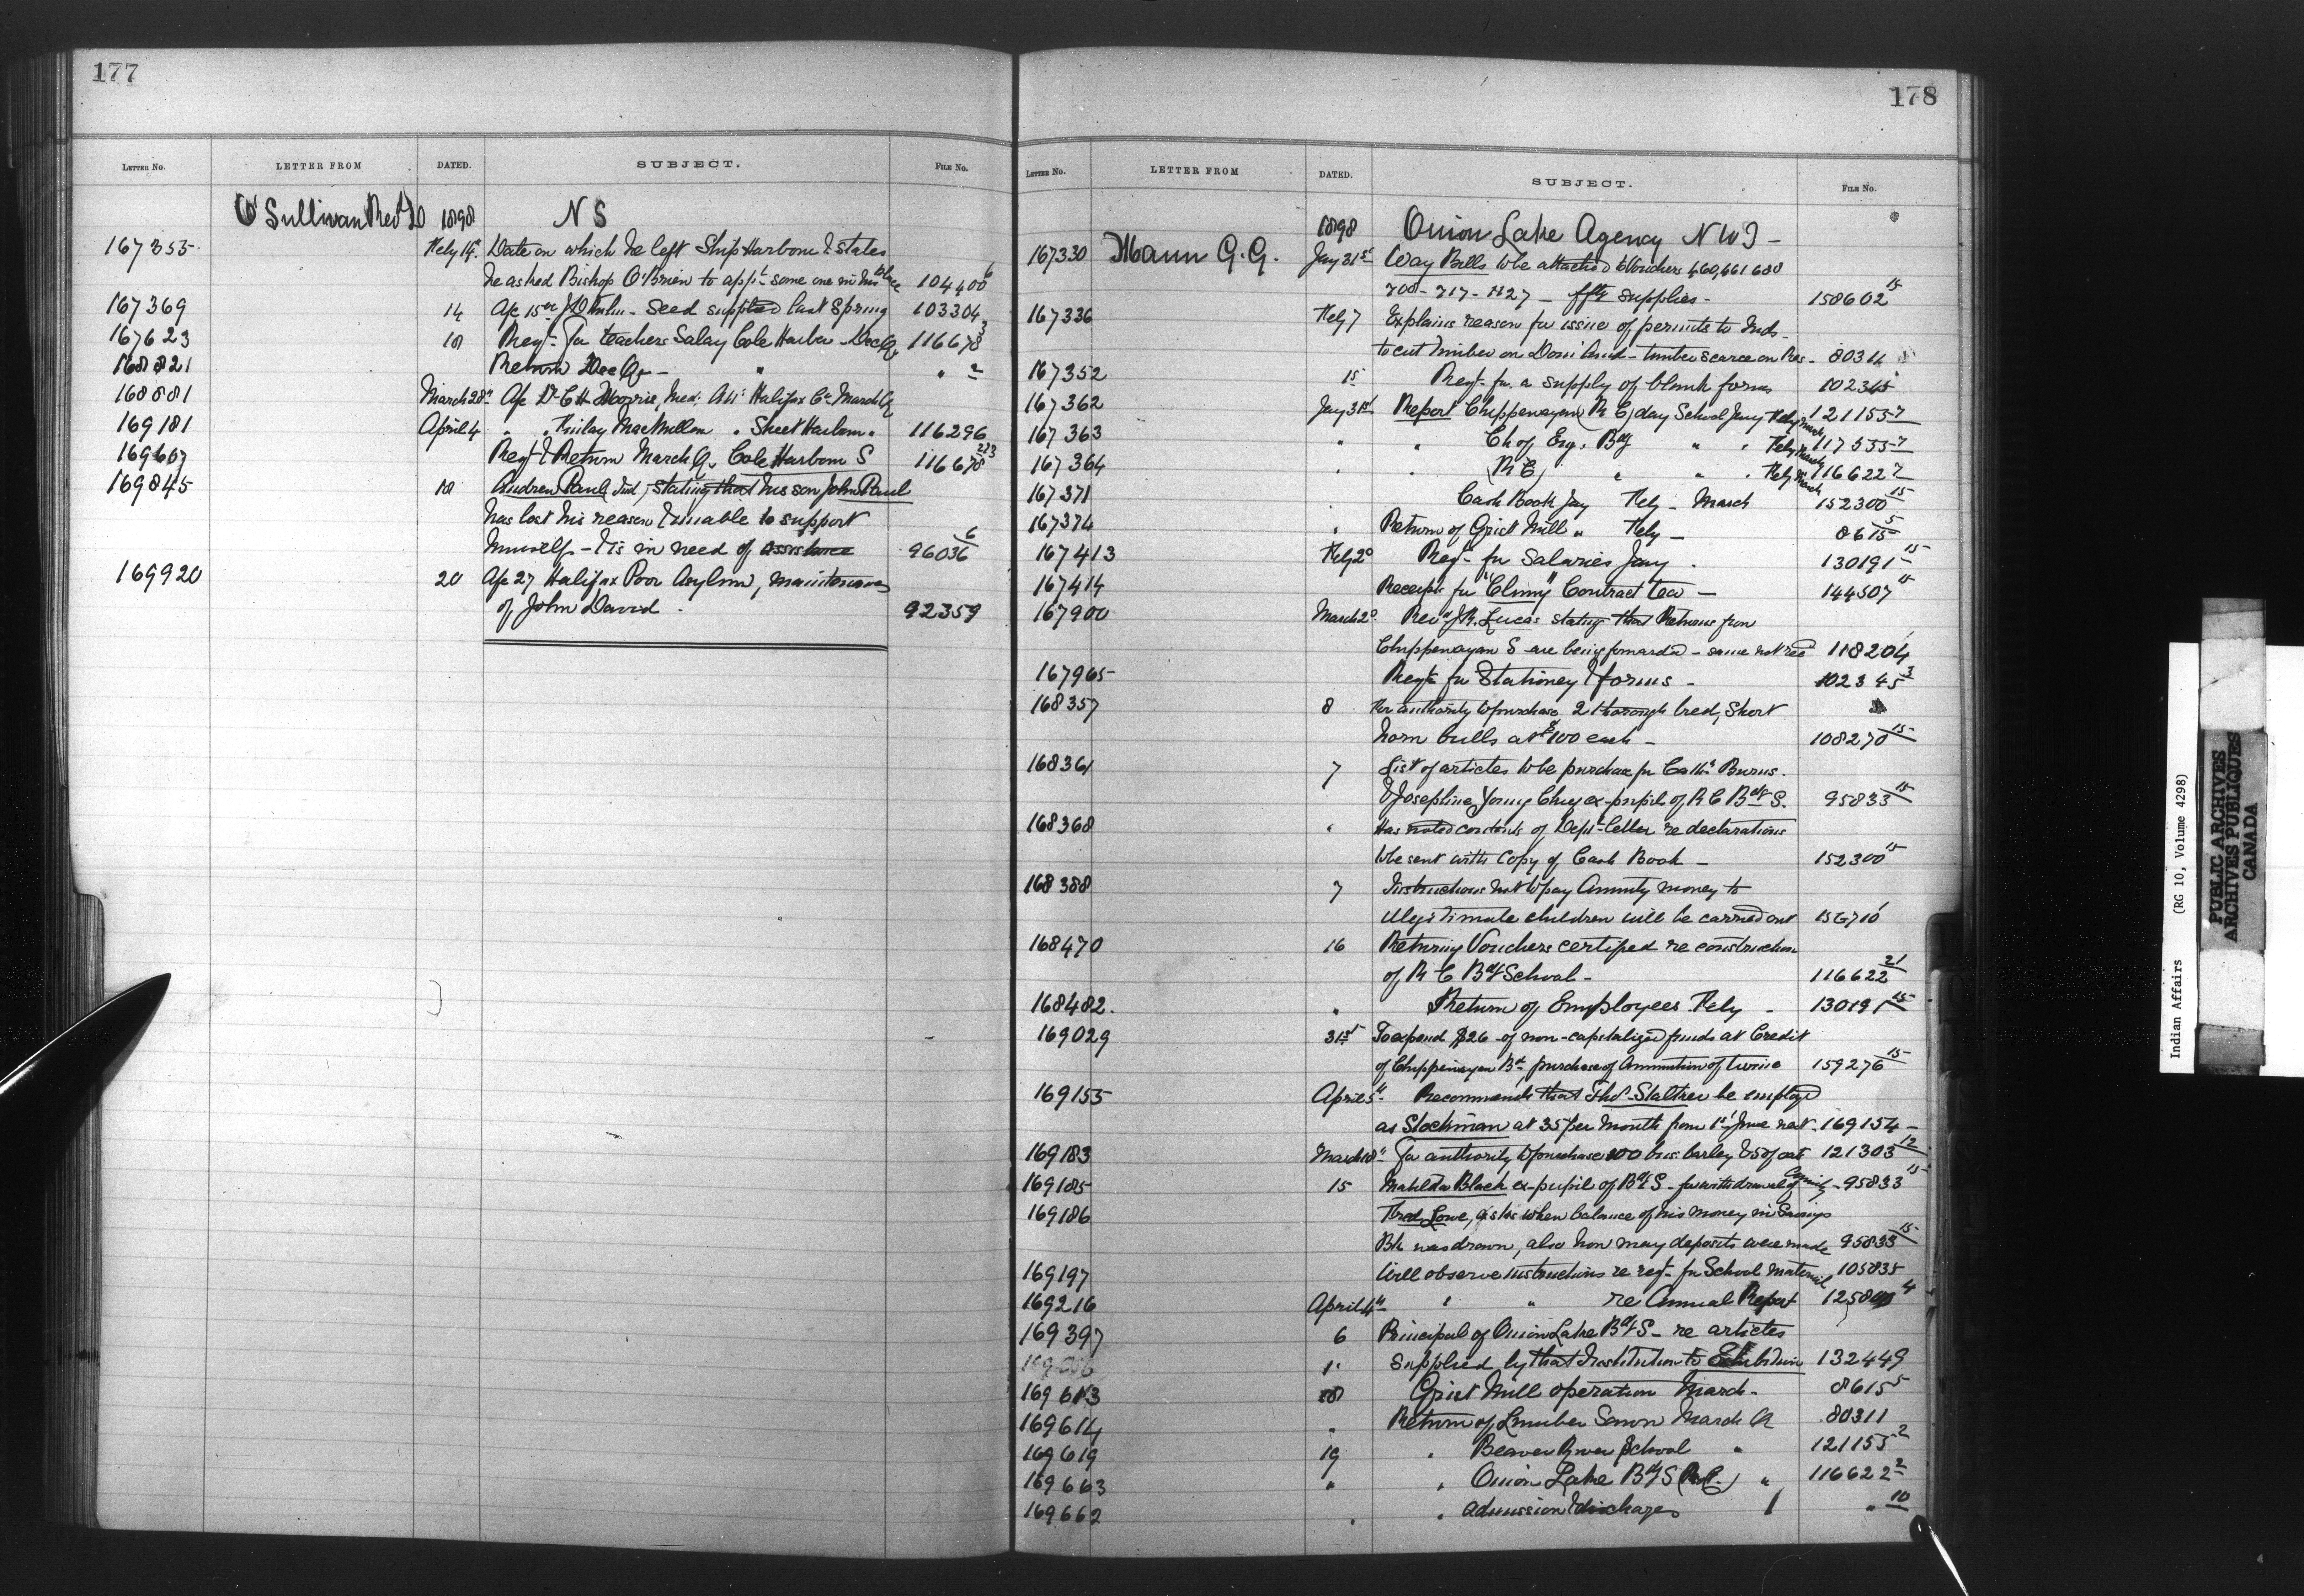 177
LETTER NO. LETTER FROM DATED. SUBJECT. FILE NO.
O'Sullivan Revd D 1898 N S
167355 Feby 14 Date on which he left Ship Harbour & states
he asked Bishop O'Brien to appt some one in his place 104400 6
167369 14 Ap 15 Seed supplied last Spring 103304
167623 18 Reqn for teachers Salary Cole Harbor Dec Qr 116678 3
168821 Return Dec Qr " " 2
168881 March 28 Ap Dr C H Morris, Med: Att: Halifax Co March Qr
169181 April 4 " " Finlay MacMillan " Sheet Harbour " 116296
169607 Reqn & Return March Qr Cole Harbour S 116678 2 & 3
169845 18 Andrew Paul Ind, stating that his son John Paul
has lost his reason & unable to support
himself - & is in need of assistance 96036 6
169920 20 Ap 27 Halifax Poor Asylum, maintenance
of John David. 92359
178
LETTER NO. LETTER FROM DATED. SUBJECT. FILE NO.
1898 Onion Lake Agency N W T -
167330 Mann G. G. Jany 31st Way Bills to be attached to Vouchers 460, 661 680
700 - 717 - 727 - supplies - 158602 15
167336 Feby 7 Explains reason for issue of permits to Inds
to cut timber on Dom' land - timber scarce on Res - 80311
167352 15 Reqn for a supply of blank forms 102345
167362 Jany 31st Report Chippewayan (R C) day School Jany Feby March 121155 2
167363 " " Ch of Eng. Bdg " " Feby March 117555 2
167364 " " (R C) " " " Feby March 116622 2
167371 " Cash Book Jany Feby - March 152300 15
167374 " Return of Grist Mill " Feby - 8615 5
167413 Feby 2d Reqn for Salaries Jany. 130191 15
167414 Receipt for "Cluny" Contract tea - 144507 15
167900 March 2d Revd J. R. Lucas stating that Returns from
Chippewayan S are being forwarded - same not recd 118204 1
167965 Reqn for Stationery & forms - 102345 3
168357 8 For authority to purchase 2 thorough bred, Short
horn bulls at $100 each - 108270 15
168361 7 List of articles to be purchase for Cathe Burns.
& Josephine Young Chief ex-pupils of R C Bdg S. 95833 15
168368 " Has noted contents of Dept Letter re declarations
to be sent with Copy of Cash Book - 152300 15
168388 7 Instructions not to pay Annuity money to
illegitimate children will be carried out 156710 1
168470 16 Returning Vouchers certified re construction
of R C Bdg School - 116622 21
168482. " Return of Employees Feby - 130191 15
169029 31st To expend $26 of non-capitalized funds at Credit
of Chippewayan Bd purchase of Ammunition & twine 159276 15
169155 April 5th Recommends that Thos be employed
as Stockman at 35 per month from 1st June next. 169154 -
169183 March 18th For authority to purchase 100 bus. barley & 50 of oats 121303 12
169185 15 Matilda Black ex-pupil of Bdg S - for withdrawal of Annuity - 95833 15
169186 Fred Lowe, asks when balance of his money in Savings
Bk was drawn, also how many deposits were made 95833 15
169197 Will observe instructions re reqn for School material 105835
169216 April 4th " " re Annual Report 12580 4
169397 6 Principal of Onion Lake Bdg S - re articles
supplied by that Institution to Exhibition 132449
169613 18 Grist Mill operation March - 8615 5
169614 " Return of Lumber Sawn March Qr 80311
169619 19 " Beaver River School " 121155 2
169663 " " Onion Lake Bdg S (R.C.) " 116622 2
169662 " " admission & discharges " 10
Indian Affairs (RG 10, Volume 4298)
PUBLIC ARCHIVES
ARCHIVES PUBLIQUES
CANADA